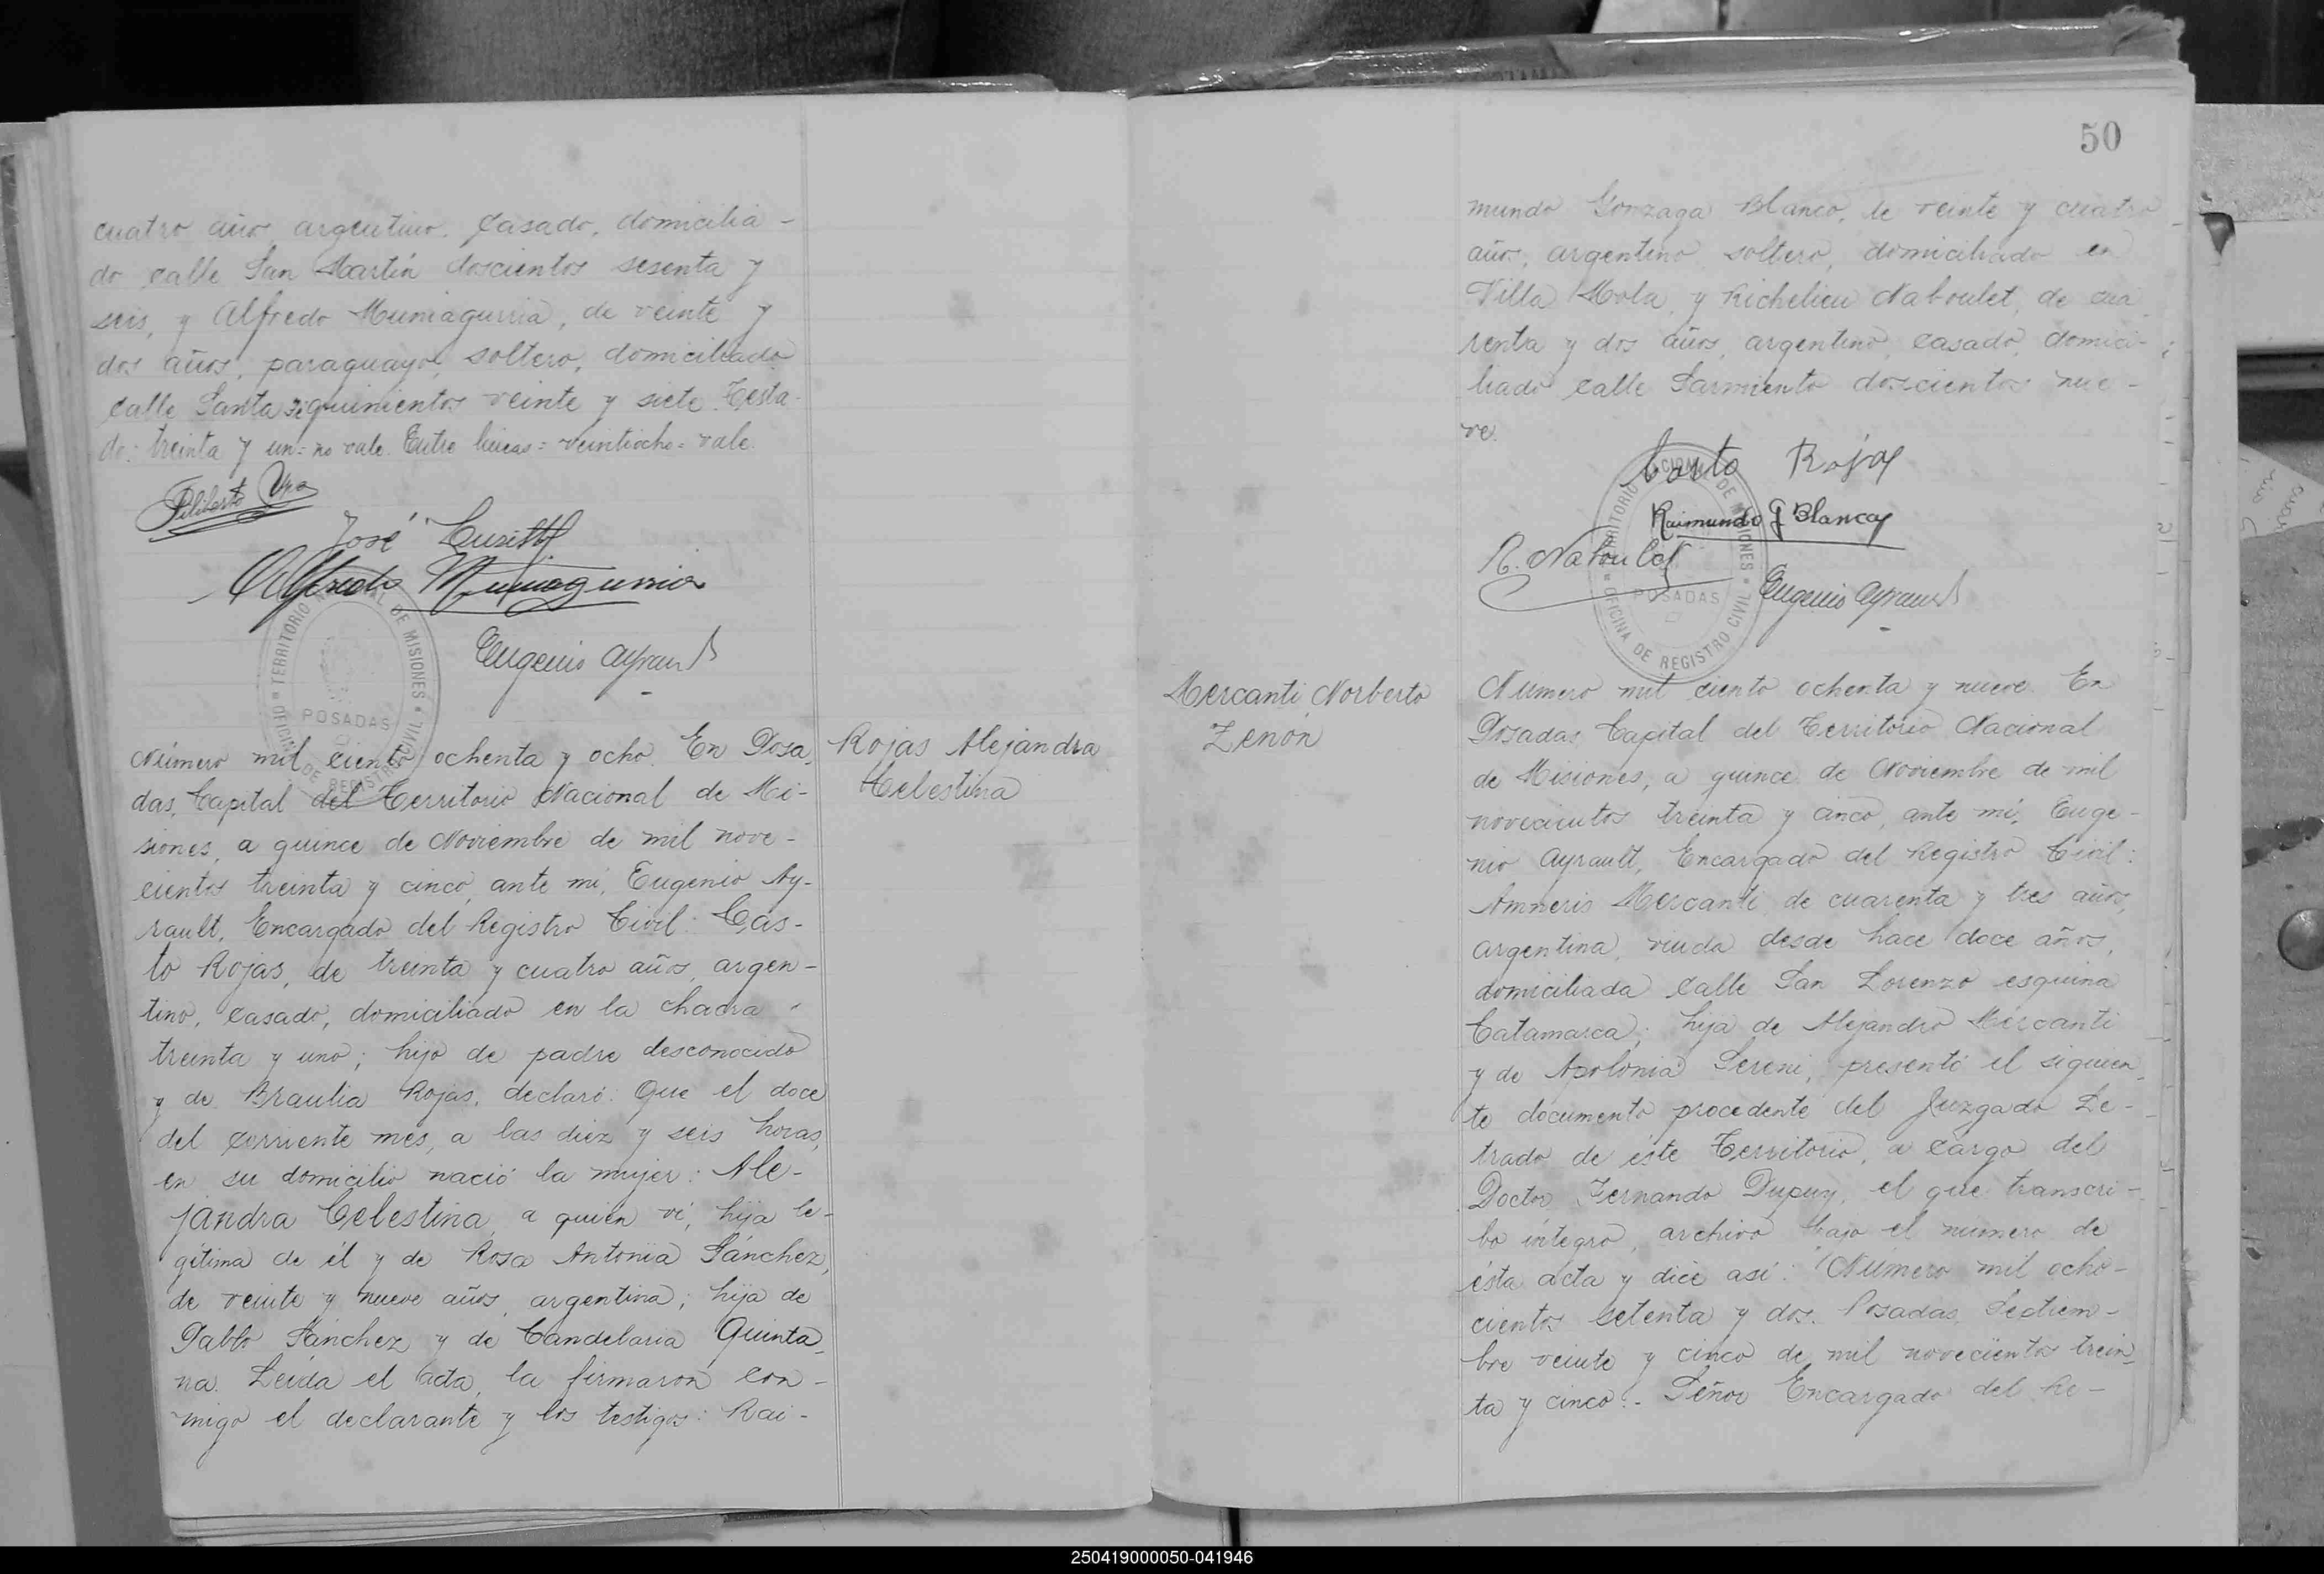 cuatro años, argentino, casado, domicilia-
do calle San Martín doscientos sesenta y
seis, y Alfredo Muniagurria, de veinte y
dos años, paraguayo, soltero, domiciliado
calle Santa Fe quinientos veinte y siete. Testa-
do: treinta y un = no vale. Entre lineas = veintiocho = vale.
Filiberto
José
Alfredo Muniagurria
Eugenio Ayrault
TERRITORIO NACIONAL DE MISIONES
POSADAS
OFICINA DE REGISTRO CIVIL
Número mil ciento ochenta y ocho. En Posa-
das, Capital del Territorio Nacional de Mi-
siones, a quince de Noviembre de mil nove-
cientos treinta y cinco, ante mí, Eugenio Ay-
rault, Encargado del Registro Civil: Cas-
to Rojas, de treinta y cuatro años, argen-
tino, casado, domiciliado en la chacra
treinta y uno; hijo de padre desconocido
y de Braulia Rojas, declaró: Que el doce
del corriente mes, a las diez y seis horas,
en su domicilio nació la mujer: Ale-
jandra Celestina, a quien ví, hija le-
gítima de él y de Rosa Antonia Sánchez,
de veinte y nueve años, argentina; hija de
Pablo Sánchez y de Candelaria Quinta-
na. Leida el acta, la firmaron con-
migo el declarante y los testigos: Rai-
Rojas Alejandra
Celestina
50
mundo Gonzaga Blanco, de veinte y cuatro
años, argentino soltero, domiciliado en
Villa Mola, y Richelieu Naboulet, de cua
renta y dos años, argentino, casado, domici-
liado calle Sarmiento doscientos nue-
ve.
Casto Rojas
Raimundo G Blanco
R. Naboulet
Eugenio Ayrault
TERRITORIO NACIONAL DE MISIONES
POSADAS
OFICINA DE REGISTRO CIVIL
Mercanti Norberto
Zenón
Número mil ciento ochenta y nueve. En
Posadas Capital del Territorio Nacional
de Misiones, a quince de Noviembre de mil
novecientos treinta y cinco, ante mí, Euge-
nio Ayrault, Encargado del Registro Civil:
Amneris Mercanti, de cuarenta y tres años,
argentina, viuda desde hace doce años,
domiciliada calle San Lorenzo esquina
Catamarca; hija de Alejandro Mercanti
y de Apolonia Sereni, presentó el siguien-
te documento procedente del Juzgado Le-
trado de éste Territorio, a cargo del
Doctor Fernando Dupuy, el que transcri-
bo íntegro, archivo bajo el número de
ésta acta y dice así: "Número mil ocho-
cientos setenta y dos. Posadas, Septiem-
bre veinte y cinco de mil novecientos trein-
ta y cinco.- Señor Encargado del Re-
250419000050-041946